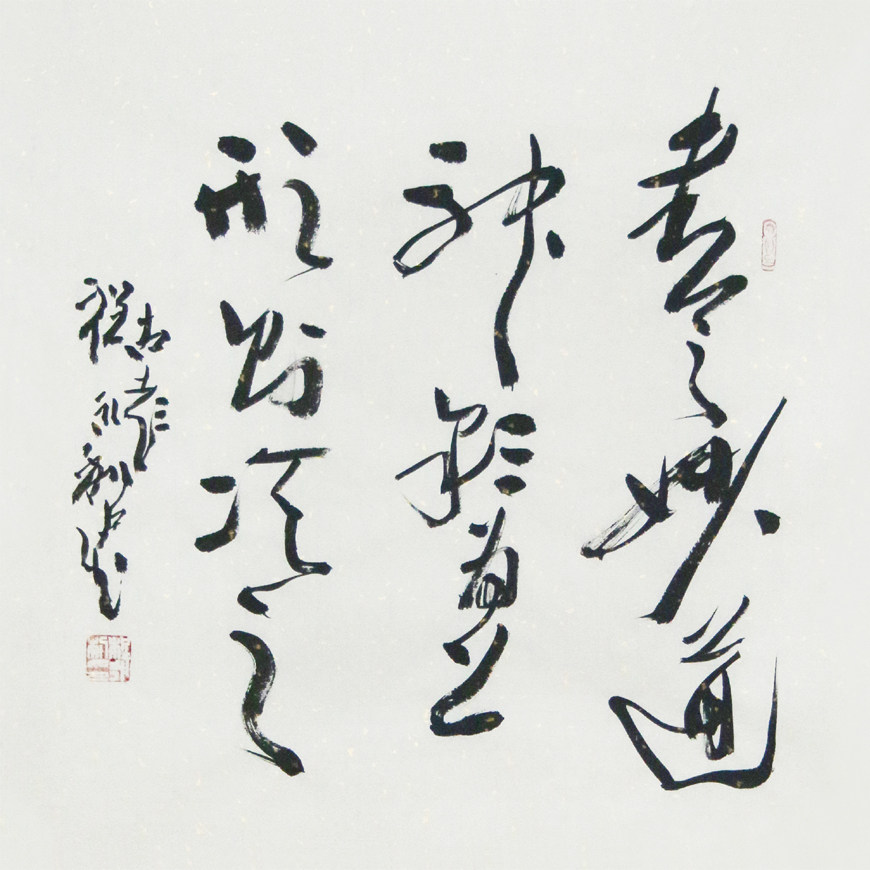 書之妙道
神彩為上
形質次之